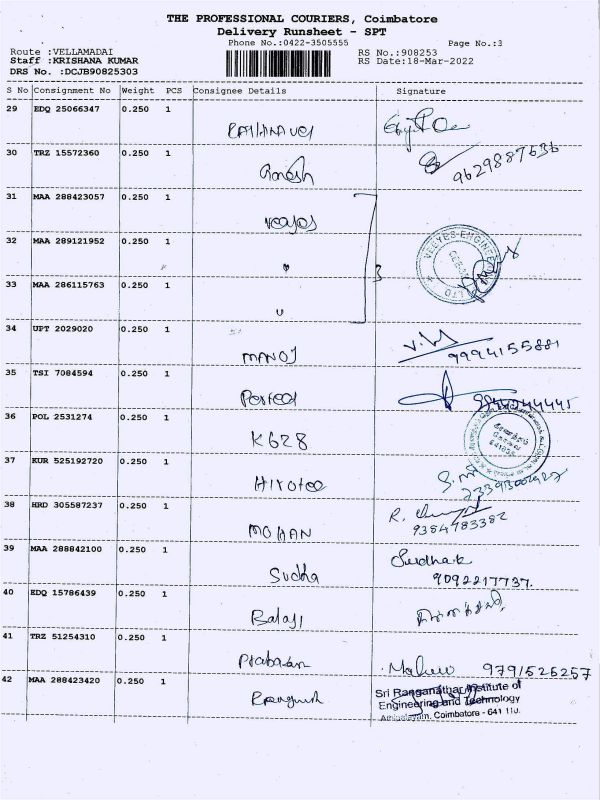 THE PROFESSIONAL COURIERS, Coimbatore
Delivery Runsheet - SPT
Phone No.:0422-3505555 Page No.:3
Route :VELLAMADAI RS No.:908253
Staff :KRISHANA KUMAR RS Date:18-Mar-2022
DRS No. :DCJB90825303
S No Consignment No Weight PCS Consignee Details Signature
29 EDQ 25066347 0.250 1
30 TRZ 15572360 0.250 1
Ganesh 9629887636
31 MAA 288423057 0.250 1
32 MAA 289121952 0.250 1
VEEYES ENGINEE
33 MAA 286115763 0.250 1
3
34 UPT 2029020 0.250 1
MANOJ 9994155881
35 TSI 7084594 0.250 1
36 POL 2531274 0.250 1
K628
37 KUR 525192720 0.250 1
38 HRD 305587237 0.250 1
MOHAN 9384783382
39 MAA 288842100 0.250 1
Sudha 9092217737.
40 EDQ 15786439 0.250 1
Balaji
41 TRZ 51254310 0.250 1
Prabakaran 9791526257
42 MAA 288423420 0.250 1
Sri Ranganathar Institute of
Engineering and Technology
Athipalayam, Coimbatore - 641 110.